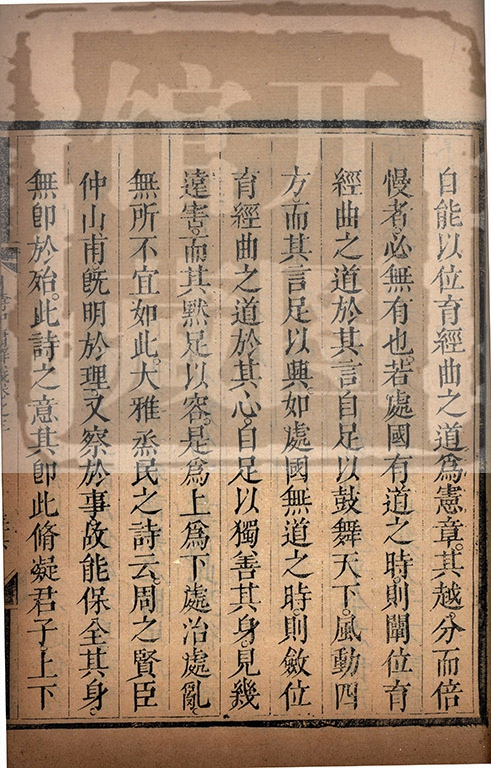 自能以位育經曲之道爲憲章其越分而倍
慢者必無有也若處國有道之時則闡位育
經曲之道於其言自足以鼓舞天下風動四
方而其言足以興如處國無道之時則斂位
育經曲之道於其心自足以獨善其身見幾
遠害而其黙足以容是爲上爲下處治處亂
無所不宜如此大雅烝民之詩云周之賢臣
仲山甫旣明於理又察於事故能保全其身
無卽於殆此詩之意其卽此脩凝君子上下